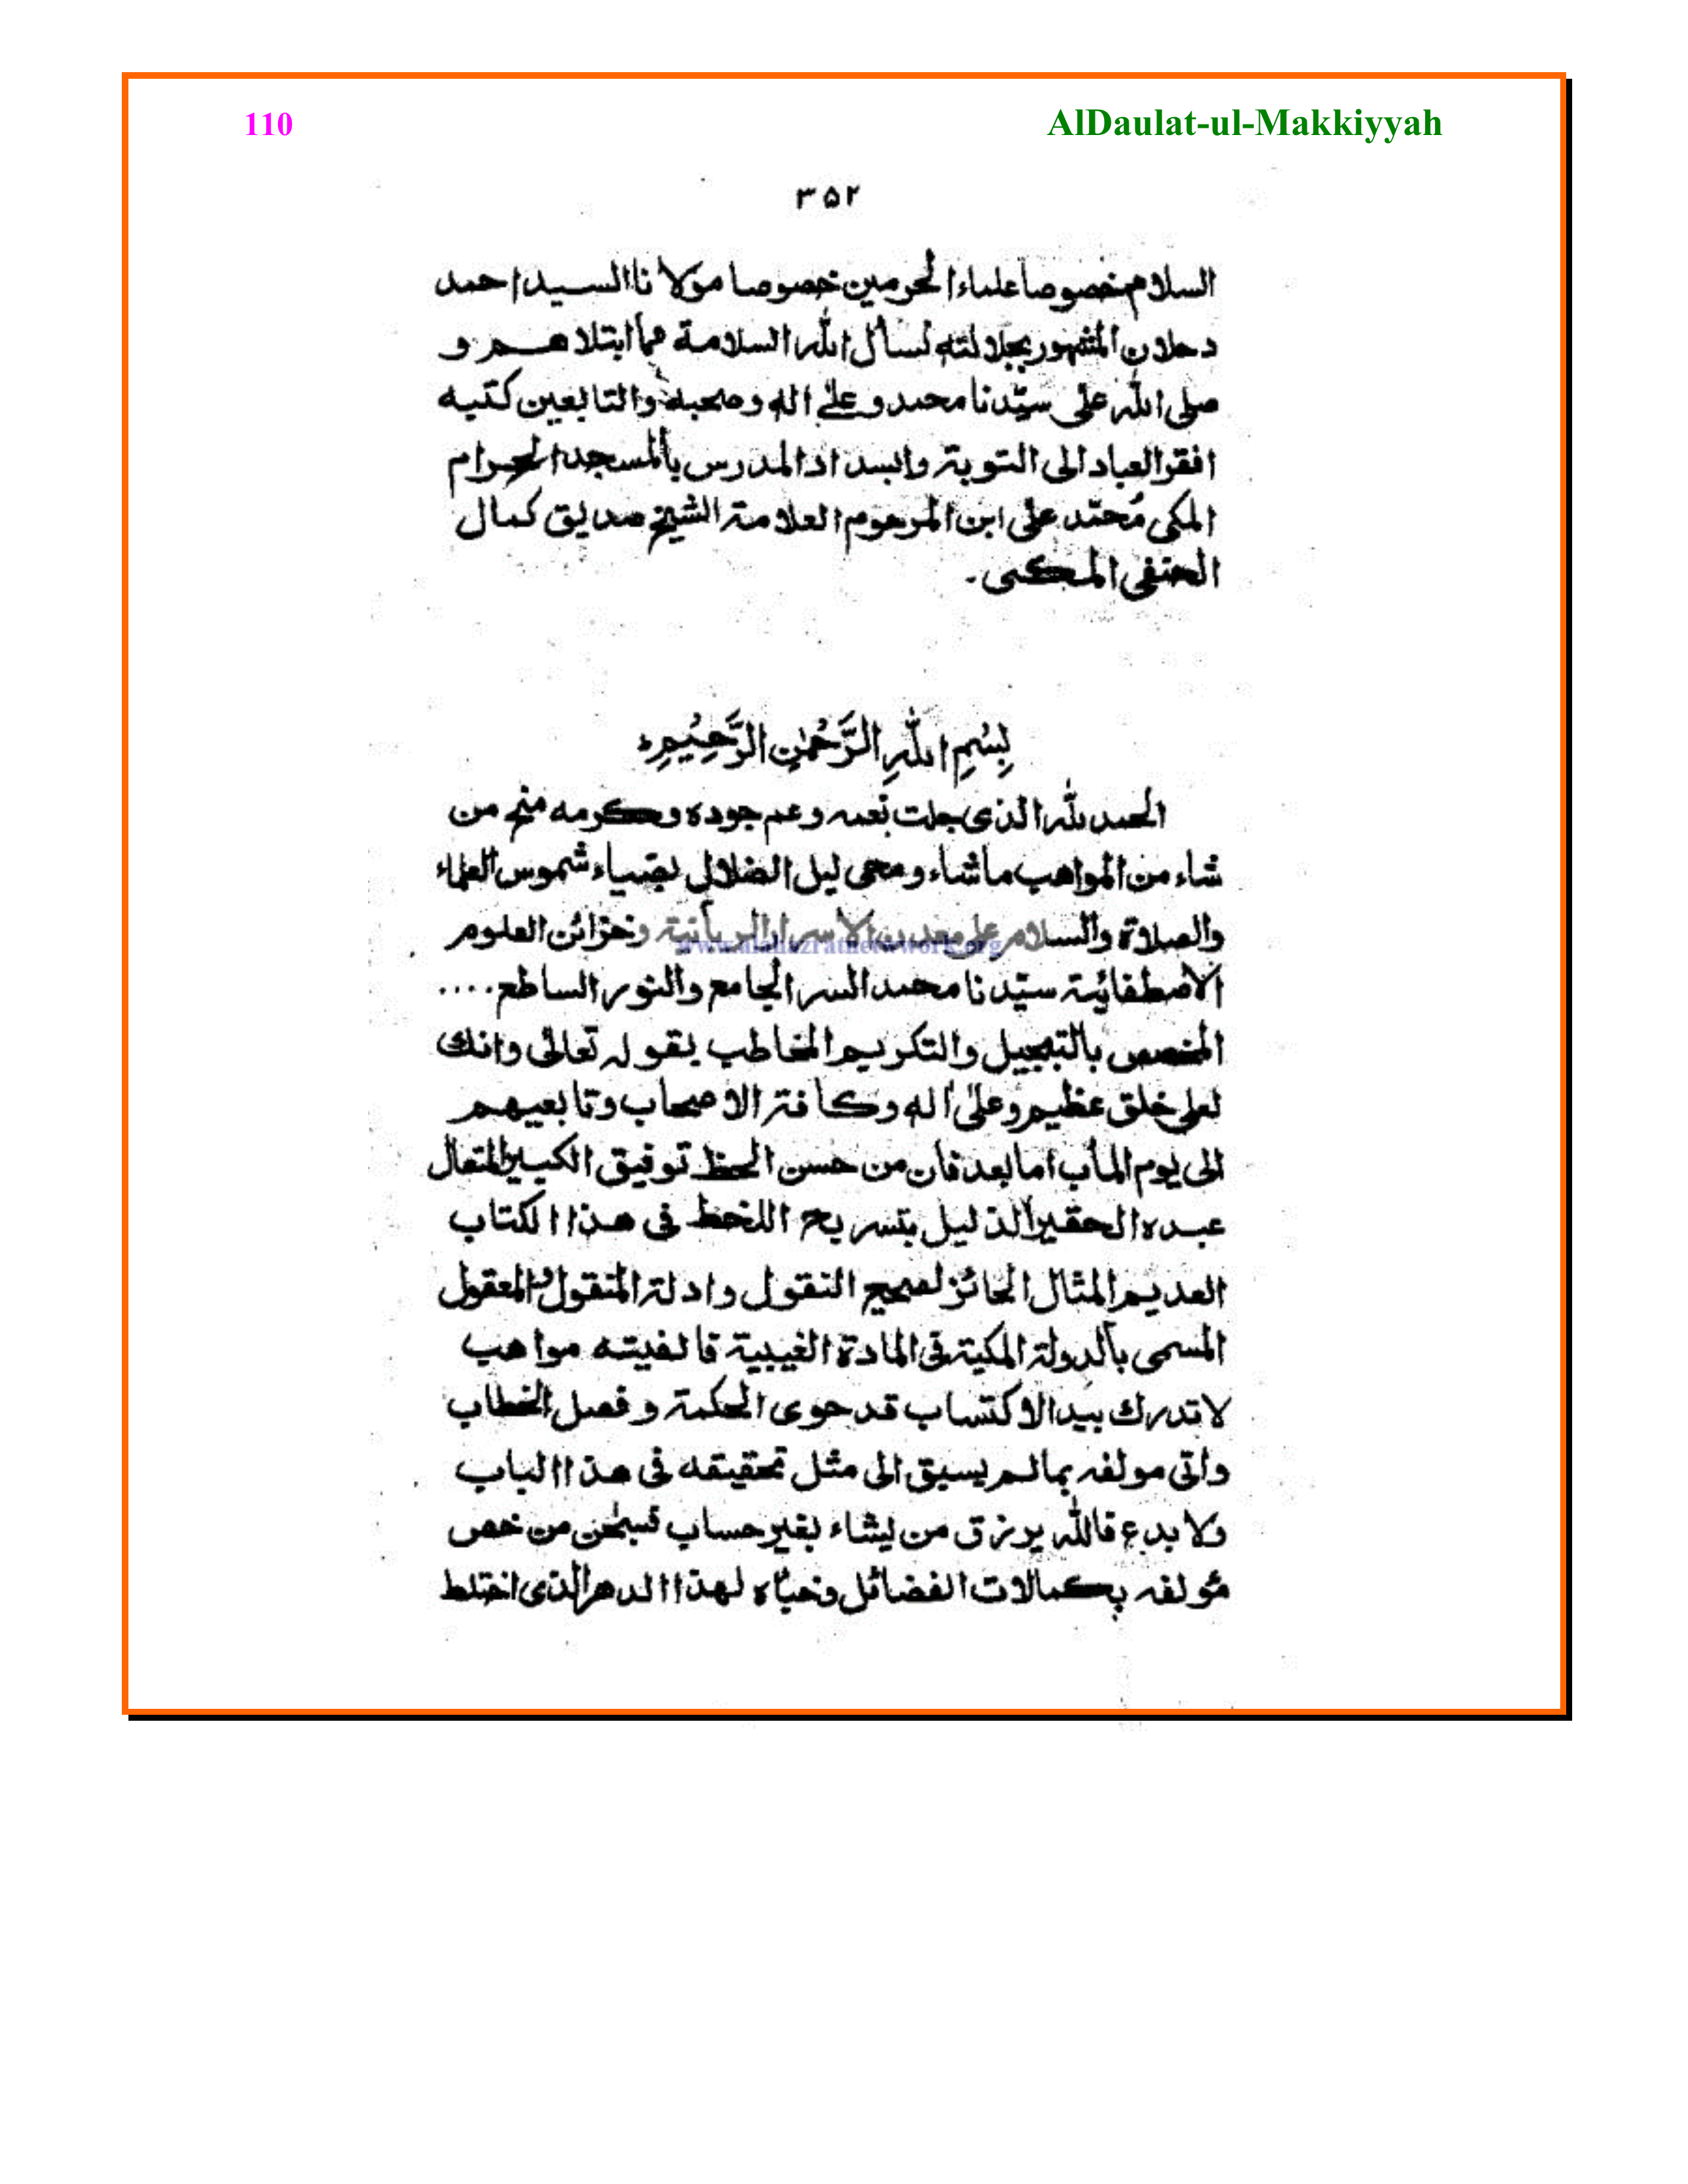 110
AlDaulat-ul-Makkiyyah
۳۵۲
السلام خصوصا علماء الحرمين خصوصا مولانا السيد احمد
دحلان المشهور بجلالته نسأل الله السلامة مما ابتلاهم و
صلى الله على سيّدنا محمد وعلى اله وصحبه والتابعين كتبه
افقر العباد الى التوبة والسداد المدرس بالمسجد الحرام
المكى مُحمّد على ابن المرحوم العلامة الشيخ صديق كمال
الحنفى المكى۔
بِسْمِ اللهِ الرَّحْمٰنِ الرَّحِيْمِ
الحمد لله الذى جلت نعمه وعم جوده وكرمه منح من
شاء من المواهب ماشاء ومحى ليل الضلال بضياء شموس العلماء
والصلاة والسلام على معدن الاسرار الربانية وخزائن العلوم
www.alahazratnetwork.org
الاصطفائية سيّدنا محمد السر الجامع والنور الساطع....
المخصص بالتبجيل والتكريم المخاطب بقوله تعالى وانك
لعلى خلق عظيم وعلى اله وكافة الاصحاب وتابعيهم
الى يوم المأب اما بعد فان من حسن الحظ توفيق الكبير المتعال
عبده الحقير الذليل بتسريح اللحظ فى هذا الكتاب
العديم المثال الحائز لصحيح النقول وادلة المنقول والمعقول
المسمى بالدولة المكية فى المادة الغيبية فالفيته مواهب
لا تدرك بيد الاكتساب قد حوى الحكمة وفصل الخطاب
واتى مولفه بمالم يسبق الى مثل تحقيقه فى هذا الباب
ولا بدع فالله يرزق من يشاء بغير حساب فسبحٰن من خص
مؤلفه بكمالات الفضائل وخبأه لهذا الدهر الذى اختلط